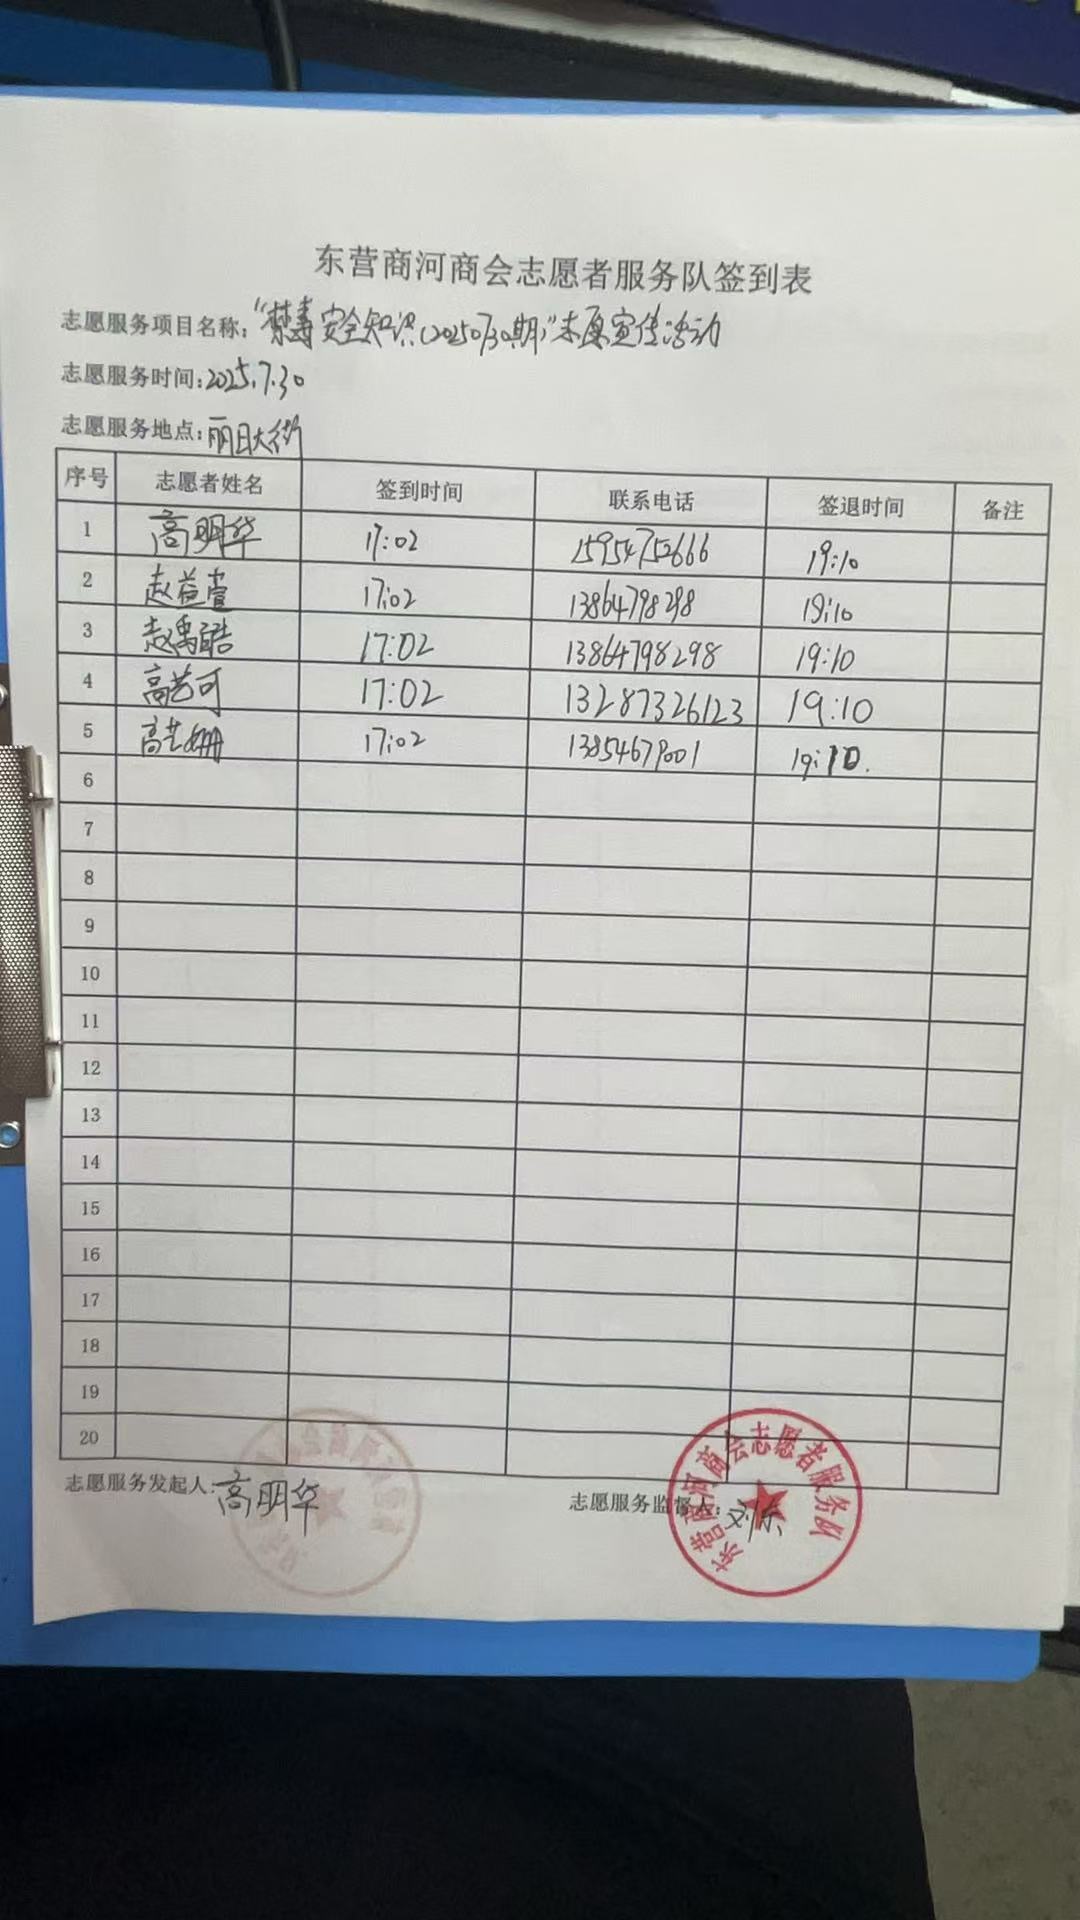 东营商河商会志愿者服务队签到表
志愿服务项目名称:"禁毒安全知识(20250730期)"志愿宣传活动
志愿服务时间:2025.7.30
志愿服务地点:丽日大街
序号 志愿者姓名 签到时间 联系电话 签退时间 备注
1 高明华 17:02 15954752666 19:10
2 赵益萱 17:02 13864798298 19:10
3 赵禹皓 17:02 13864798298 19:10
4 高艺可 17:02 13287326123 19:10
5 高艺姗 17:02 13854679001 19:10.
6
7
8
9
10
11
12
13
14
15
16
17
18
19
20
志愿服务发起人:高明华 志愿服务监督人:刘东
东营商河商会志愿者服务队